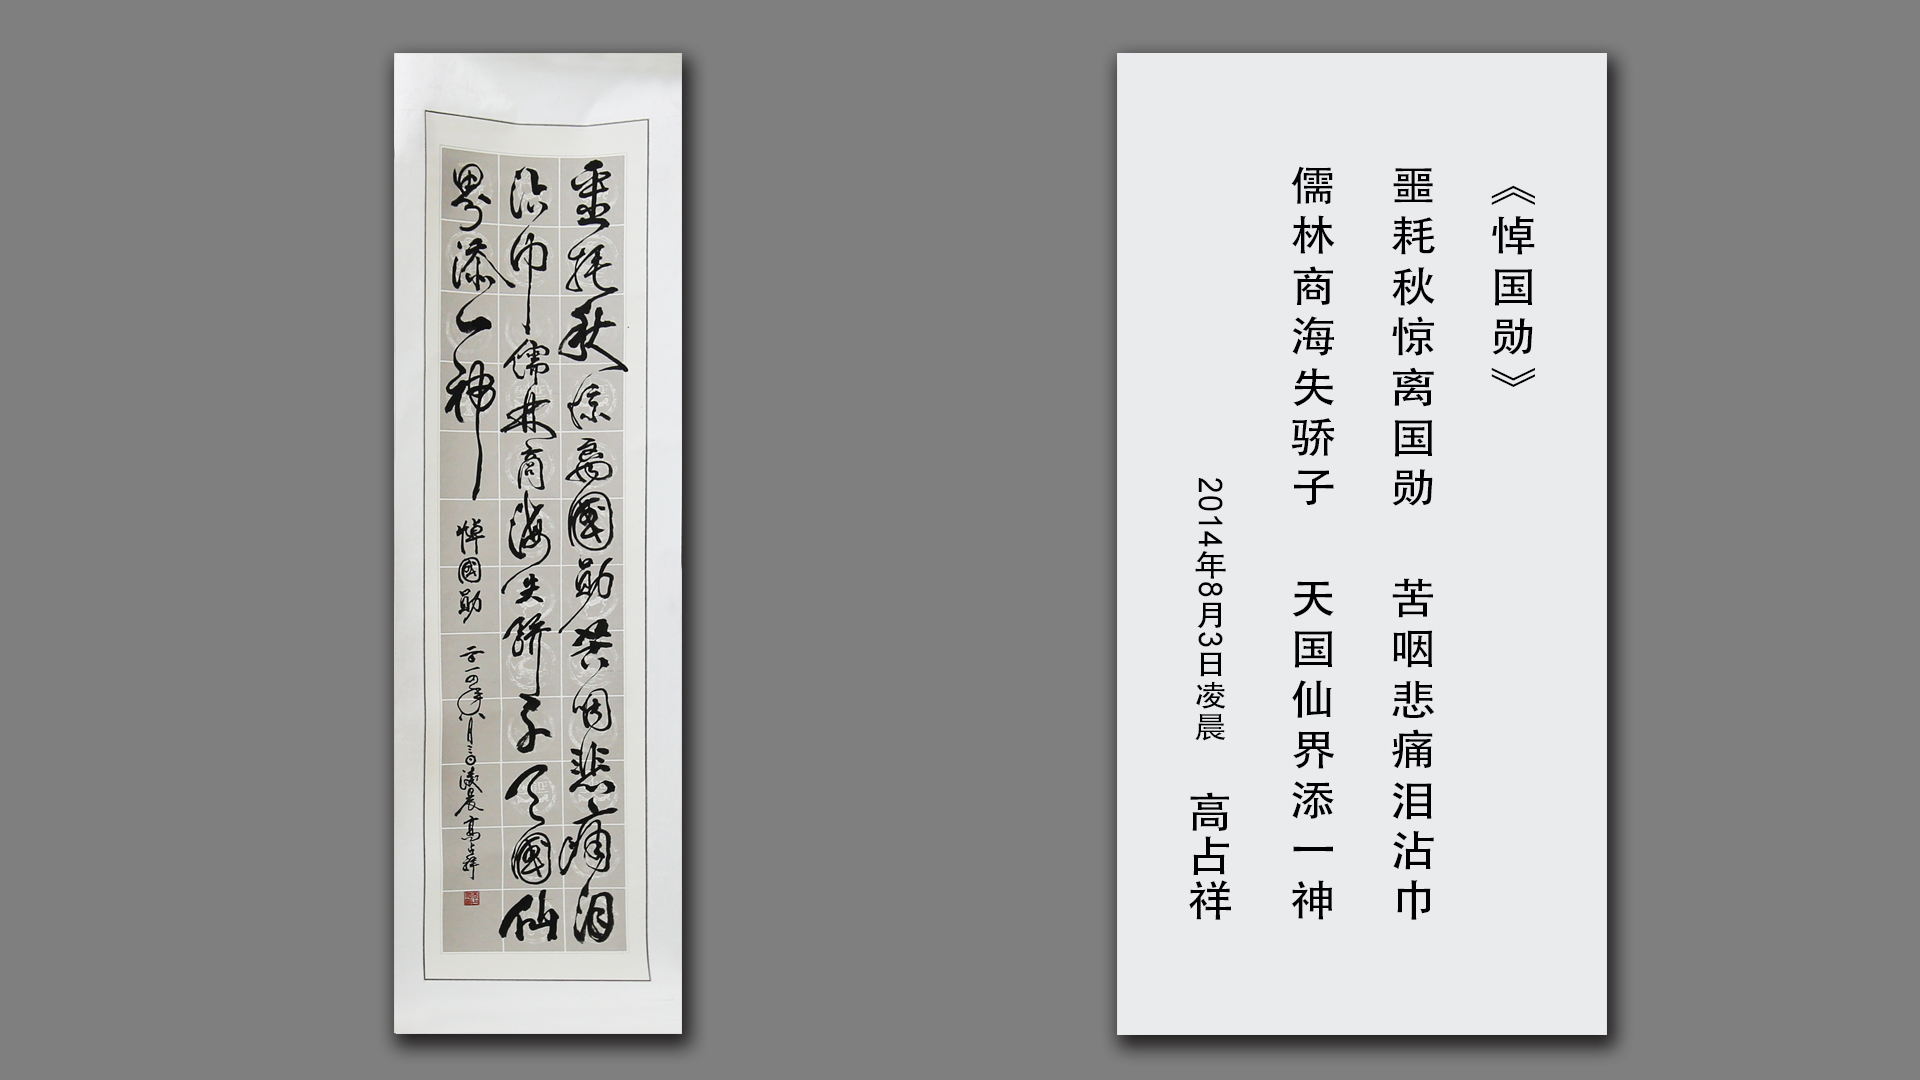 噩耗秋惊离國勋苦咽悲痛泪
沾巾儒林商海失骄子天國仙
界添一神
悼國勋
二〇一四年八月三日凌晨高占祥
《悼国勋》
噩耗秋惊离国勋 苦咽悲痛泪沾巾
儒林商海失骄子 天国仙界添一神
2014年8月3日凌晨 高占祥